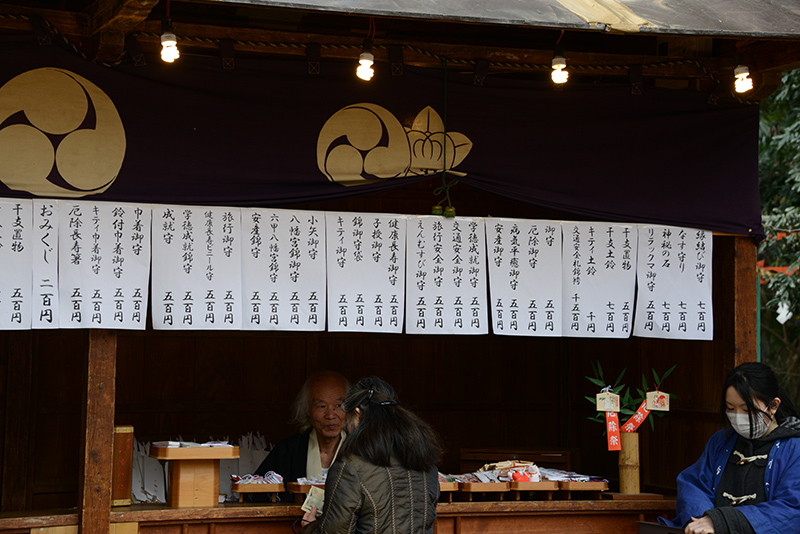 縁結び御守 七百円
なす守り 七百円
神秘の石 七百円
リラックマ守 五百円
干支置物 五百円
干支土鈴 五百円
キティ土鈴 千円
交通安全札錦柄 千五百円
御守 五百円
厄除御守 五百円
病気平癒御守 五百円
安産御守 五百円
学徳成就守 五百円
交通安全御守 五百円
旅行安全御守 五百円
えんむすび御守 五百円
健康御守 五百円
子授御守 五百円
錦御守袋 五百円
キティ御守 五百円
小矢御守 五百円
八幡宮錦御守 五百円
六甲八幡宮御守 五百円
安産錦守 五百円
旅行御守 五百円
健康長寿ビニール守 五百円
学徳成就錦守 五百円
成就守 五百円
巾着御守 五百円
鈴付巾着御守 五百円
キティ巾着御守 五百円
厄除長寿箸 五百円
おみくじ 二百円
干支置物 五百円
厄除祭